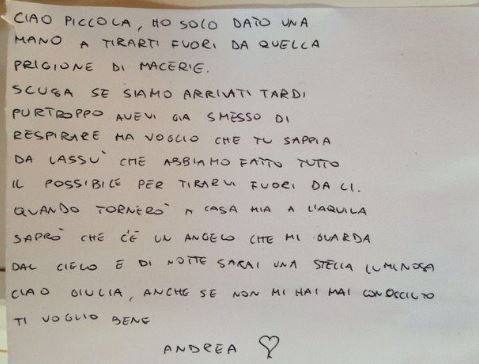 CIAO PICCOLA, HO SOLO DATO UNA
MANO A TIRARTI FUORI DA QUELLA
PRIGIONE DI MACERIE.
SCUSA SE SIAMO ARRIVATI TARDI
PURTROPPO AVEVI GIA SMESSO DI
RESPIRARE MA VOGLIO CHE TU SAPPIA
DA LASSU' CHE ABBIAMO FATTO TUTTO
IL POSSIBILE PER TIRARVI FUORI DA LI.
QUANDO TORNERO' A CASA MIA A L'AQUILA
SAPRO' CHE C'È UN ANGELO CHE MI GUARDA
DAL CIELO E DI NOTTE SARAI UNA STELLA LUMINOSA
CIAO GIULIA, ANCHE SE NON MI HAI MAI CONOSCIUTO
TI VOGLIO BENE
ANDREA